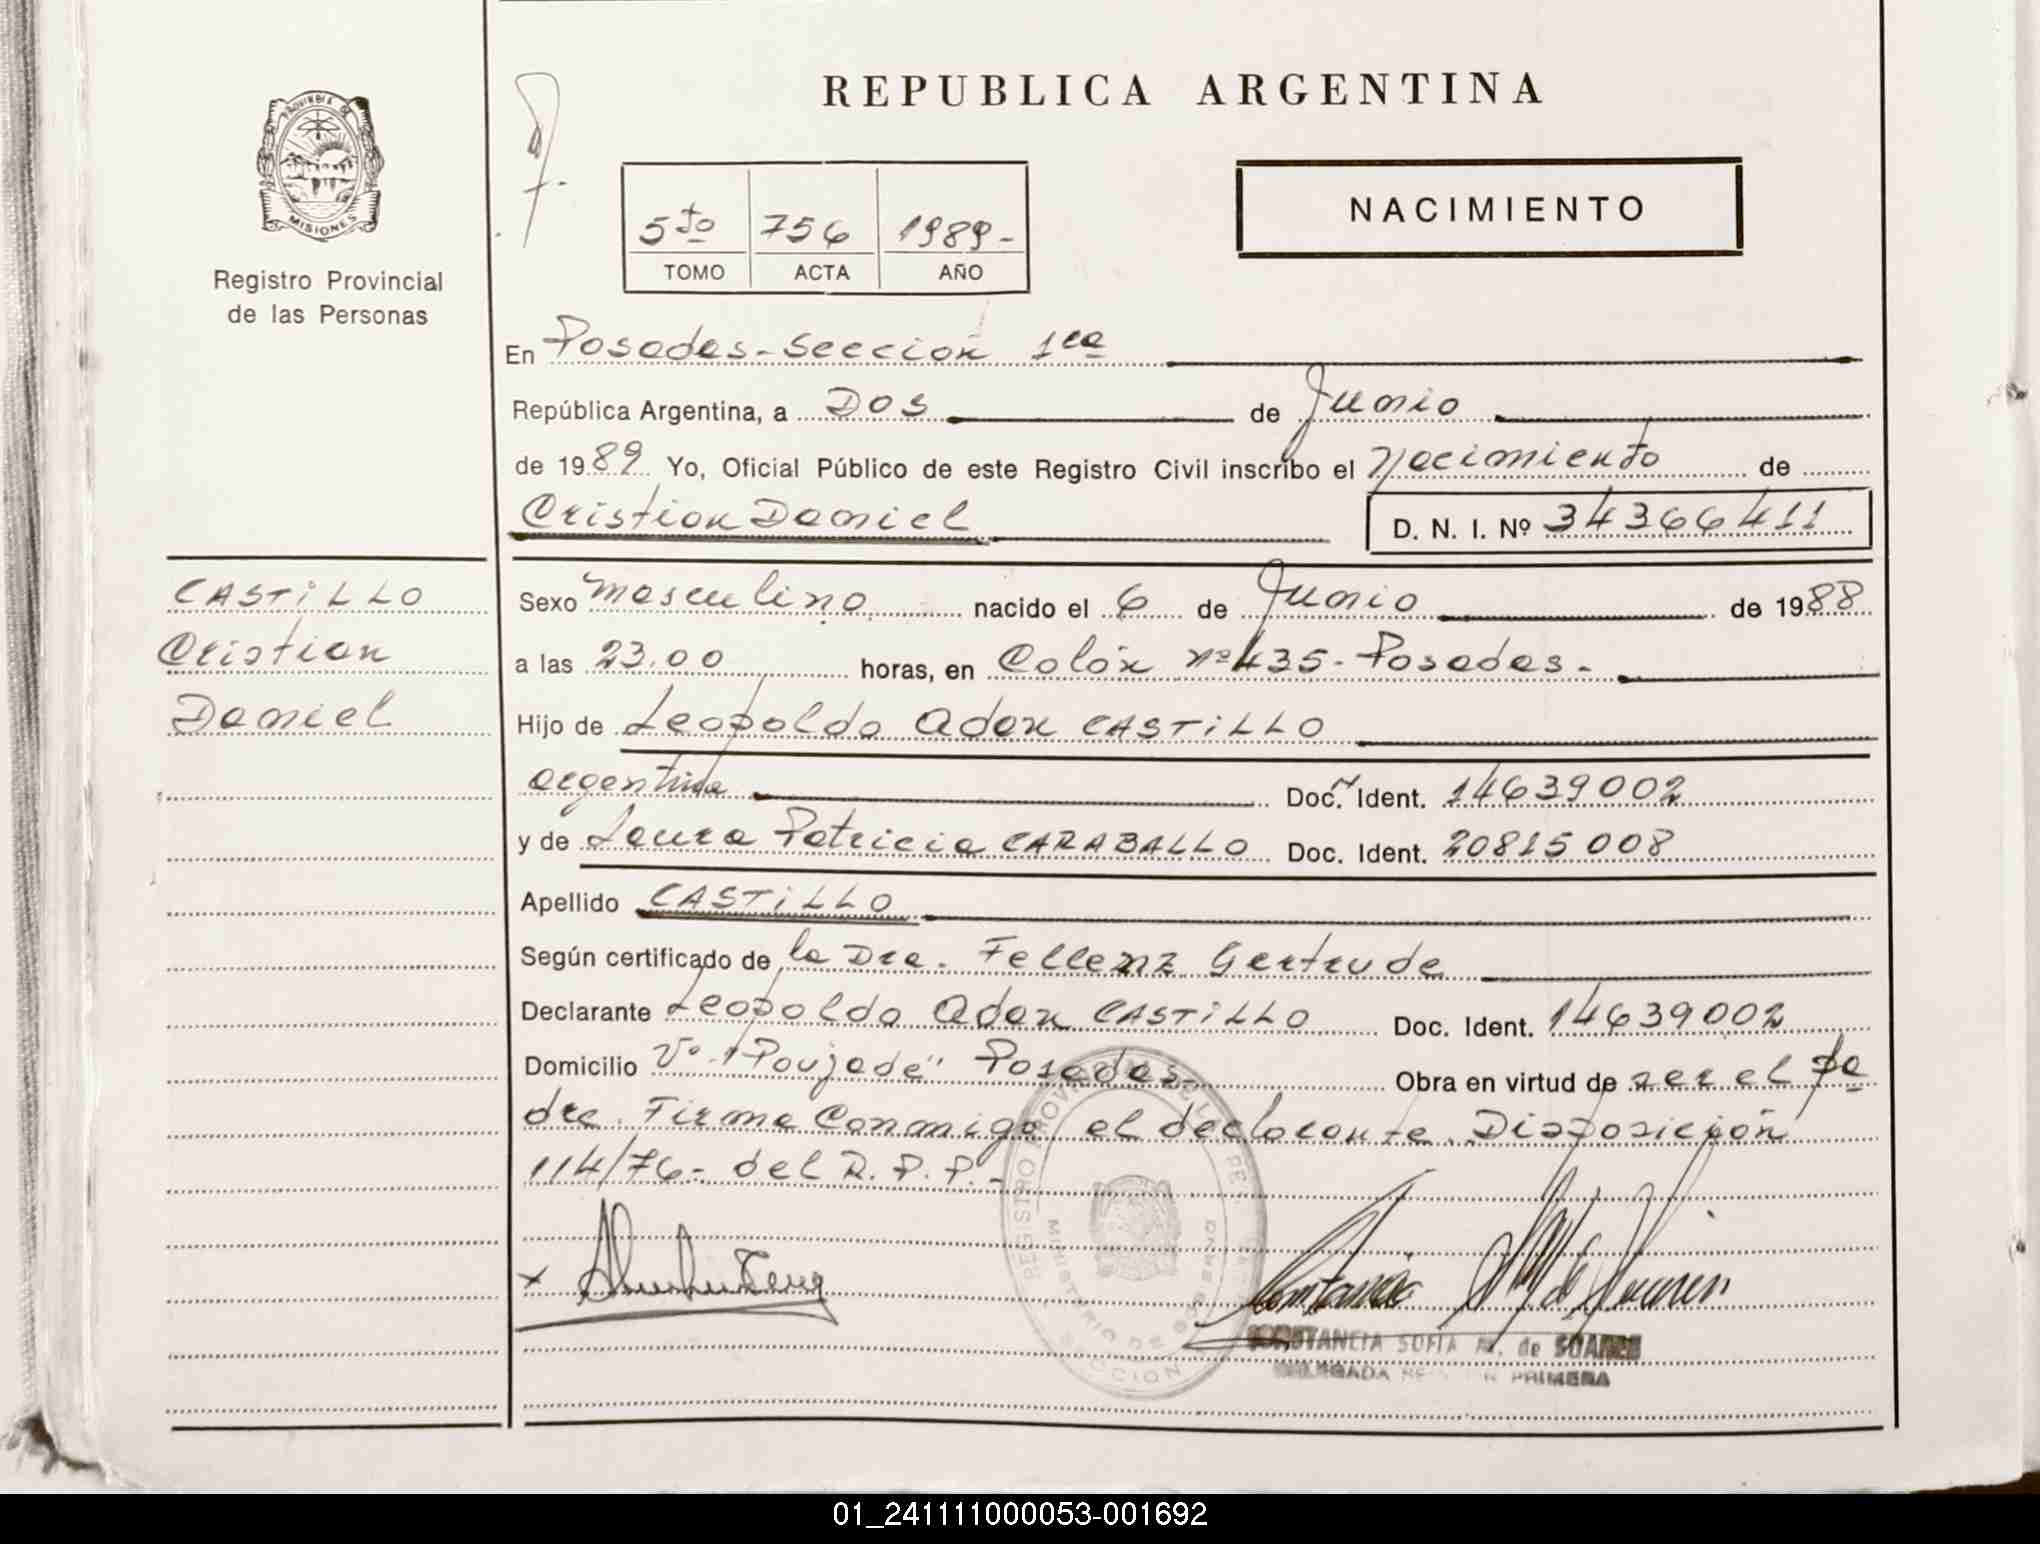 REPUBLICA ARGENTINA
PROVINCIA DE
MISIONES
Registro Provincial
de las Personas
5to 756 1989-
TOMO ACTA AÑO
NACIMIENTO
En Posadas-Sección 1ra
República Argentina, a Dos de Junio
de 1989 Yo, Oficial Público de este Registro Civil inscribo el Nacimiento de
Cristian Daniel D. N. I. Nº 34366411
CASTiLLO
Cristian
Daniel
Sexo masculino nacido el 6 de Junio de 1988
a las 23.00 horas, en Colón nº 435-Posadas-
Hijo de Leopoldo Adan CASTiLLO
argentina Doc. Ident. 14639002
y de Laura Patricia CARABALLO Doc. Ident. 20815008
Apellido CASTiLLO
Según certificado de la Dra. Fellenz Gertrude
Declarante Leopoldo Adan CASTiLLO Doc. Ident. 14639002
Domicilio Vº "Poujade" Posadas- Obra en virtud de ser el pa
dre. Firma Conmigo el declarante. Disposición
114/76- del R.P.P.-
REGISTRO PROVINCIAL DE LAS PER
MINISTERIO DE GOBIERNO
SECCION
CONSTANCIA SOFIA M. de SUAREZ
DELEGADA SECCION PRIMERA
01_241111000053-001692